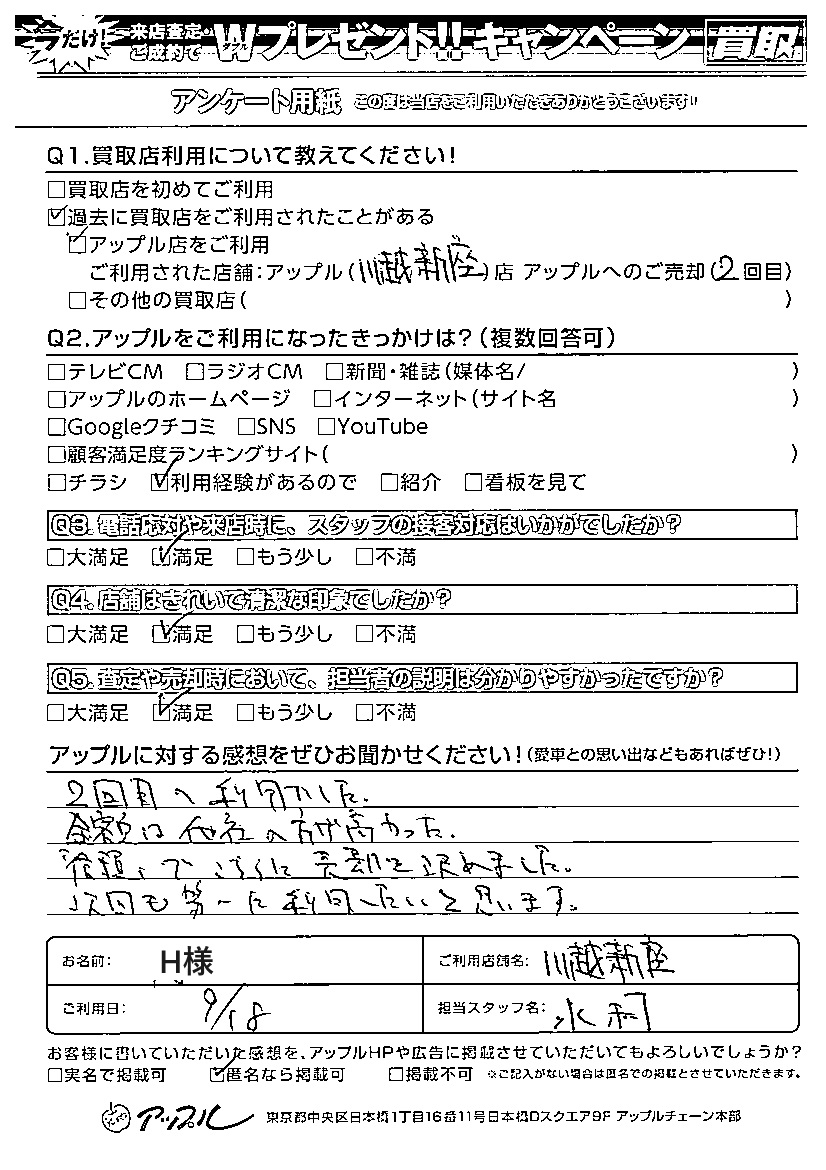 今だけ! 来店査定・ご成約で Wプレゼント!! キャンペーン 買取
アンケート用紙 この度は当店をご利用いただきありがとうございます!!
Q1.買取店利用について教えてください!
□買取店を初めてご利用
☑過去に買取店をご利用されたことがある
☑アップル店をご利用
ご利用された店舗:アップル(川越新座)店 アップルへのご売却(2回目)
□その他の買取店( )
Q2.アップルをご利用になったきっかけは?(複数回答可)
□テレビCM □ラジオCM □新聞・雑誌(媒体名/ )
□アップルのホームページ □インターネット(サイト名 )
□Googleクチコミ □SNS □YouTube
□顧客満足度ランキングサイト( )
□チラシ ☑利用経験があるので □紹介 □看板を見て
Q3.電話応対や来店時に、スタッフの接客対応はいかがでしたか?
□大満足 ☑満足 □もう少し □不満
Q4.店舗はきれいで清潔な印象でしたか?
□大満足 ☑満足 □もう少し □不満
Q5.査定や売却時において、担当者の説明は分かりやすかったですか?
□大満足 ☑満足 □もう少し □不満
アップルに対する感想をぜひお聞かせください!(愛車との思い出などもあればぜひ!)
2回目の利用でした。
金額は他社の方が高かった。
「信頼」でこちらに売却を決めました。
次回も第一に利用したいと思います。
お名前: H様 ご利用店舗名: 川越新座
ご利用日: 9/18 担当スタッフ名: 水村
お客様に書いていただいた感想を、アップルHPや広告に掲載させていただいてもよろしいでしょうか?
□実名で掲載可 ☑匿名なら掲載可 □掲載不可 ※ご記入がない場合は匿名での掲載とさせていただきます。
アップル 東京都中央区日本橋1丁目16番11号日本橋Dスクエア9F アップルチェーン本部